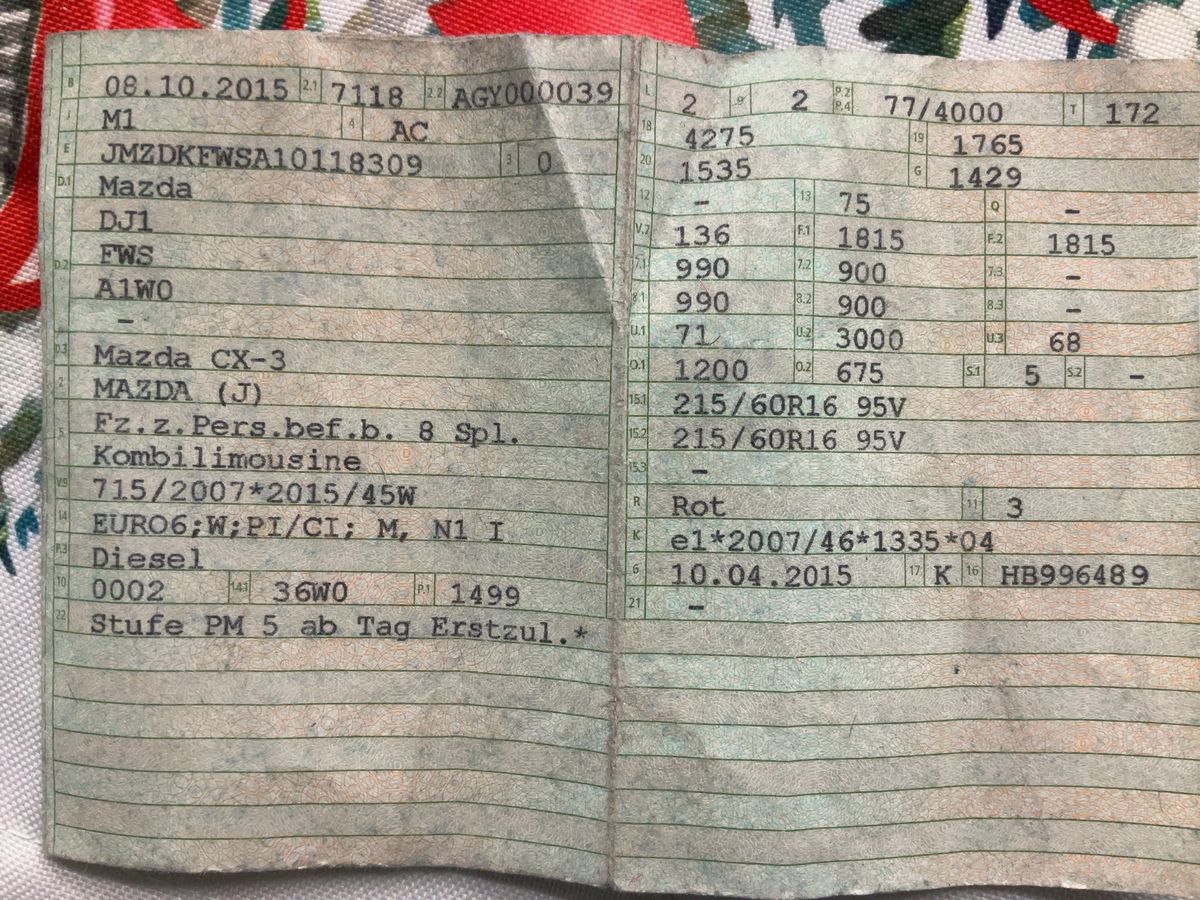 B 08.10.2015 2.1 7118 2.2 AGY000039
J M1 4 AC
E JMZDKFWSA10118309 3 0
D.1 Mazda
DJ1
D.2 FWS
A1W0
–
D.3 Mazda CX-3
2 MAZDA (J)
5 Fz.z.Pers.bef.b. 8 Spl.
Kombilimousine
V.9 715/2007*2015/45W
14 EURO6;W;PI/CI; M, N1 I
P.3 Diesel
10 0002 14.1 36W0 P.1 1499
22 Stufe PM 5 ab Tag Erstzul.*
L 2 9 2 P.2 P.4 77/4000 T 172
18 4275 19 1765
20 1535 G 1429
12 – 13 75 Q –
V.7 136 F.1 1815 F.2 1815
7.1 990 7.2 900 7.3 –
8.1 990 8.2 900 8.3 –
U.1 71 U.2 3000 U.3 68
O.1 1200 O.2 675 S.1 5 S.2 –
15.1 215/60R16 95V
15.2 215/60R16 95V
15.3 –
R Rot 11 3
K e1*2007/46*1335*04
6 10.04.2015 17 K 16 HB996489
21 –